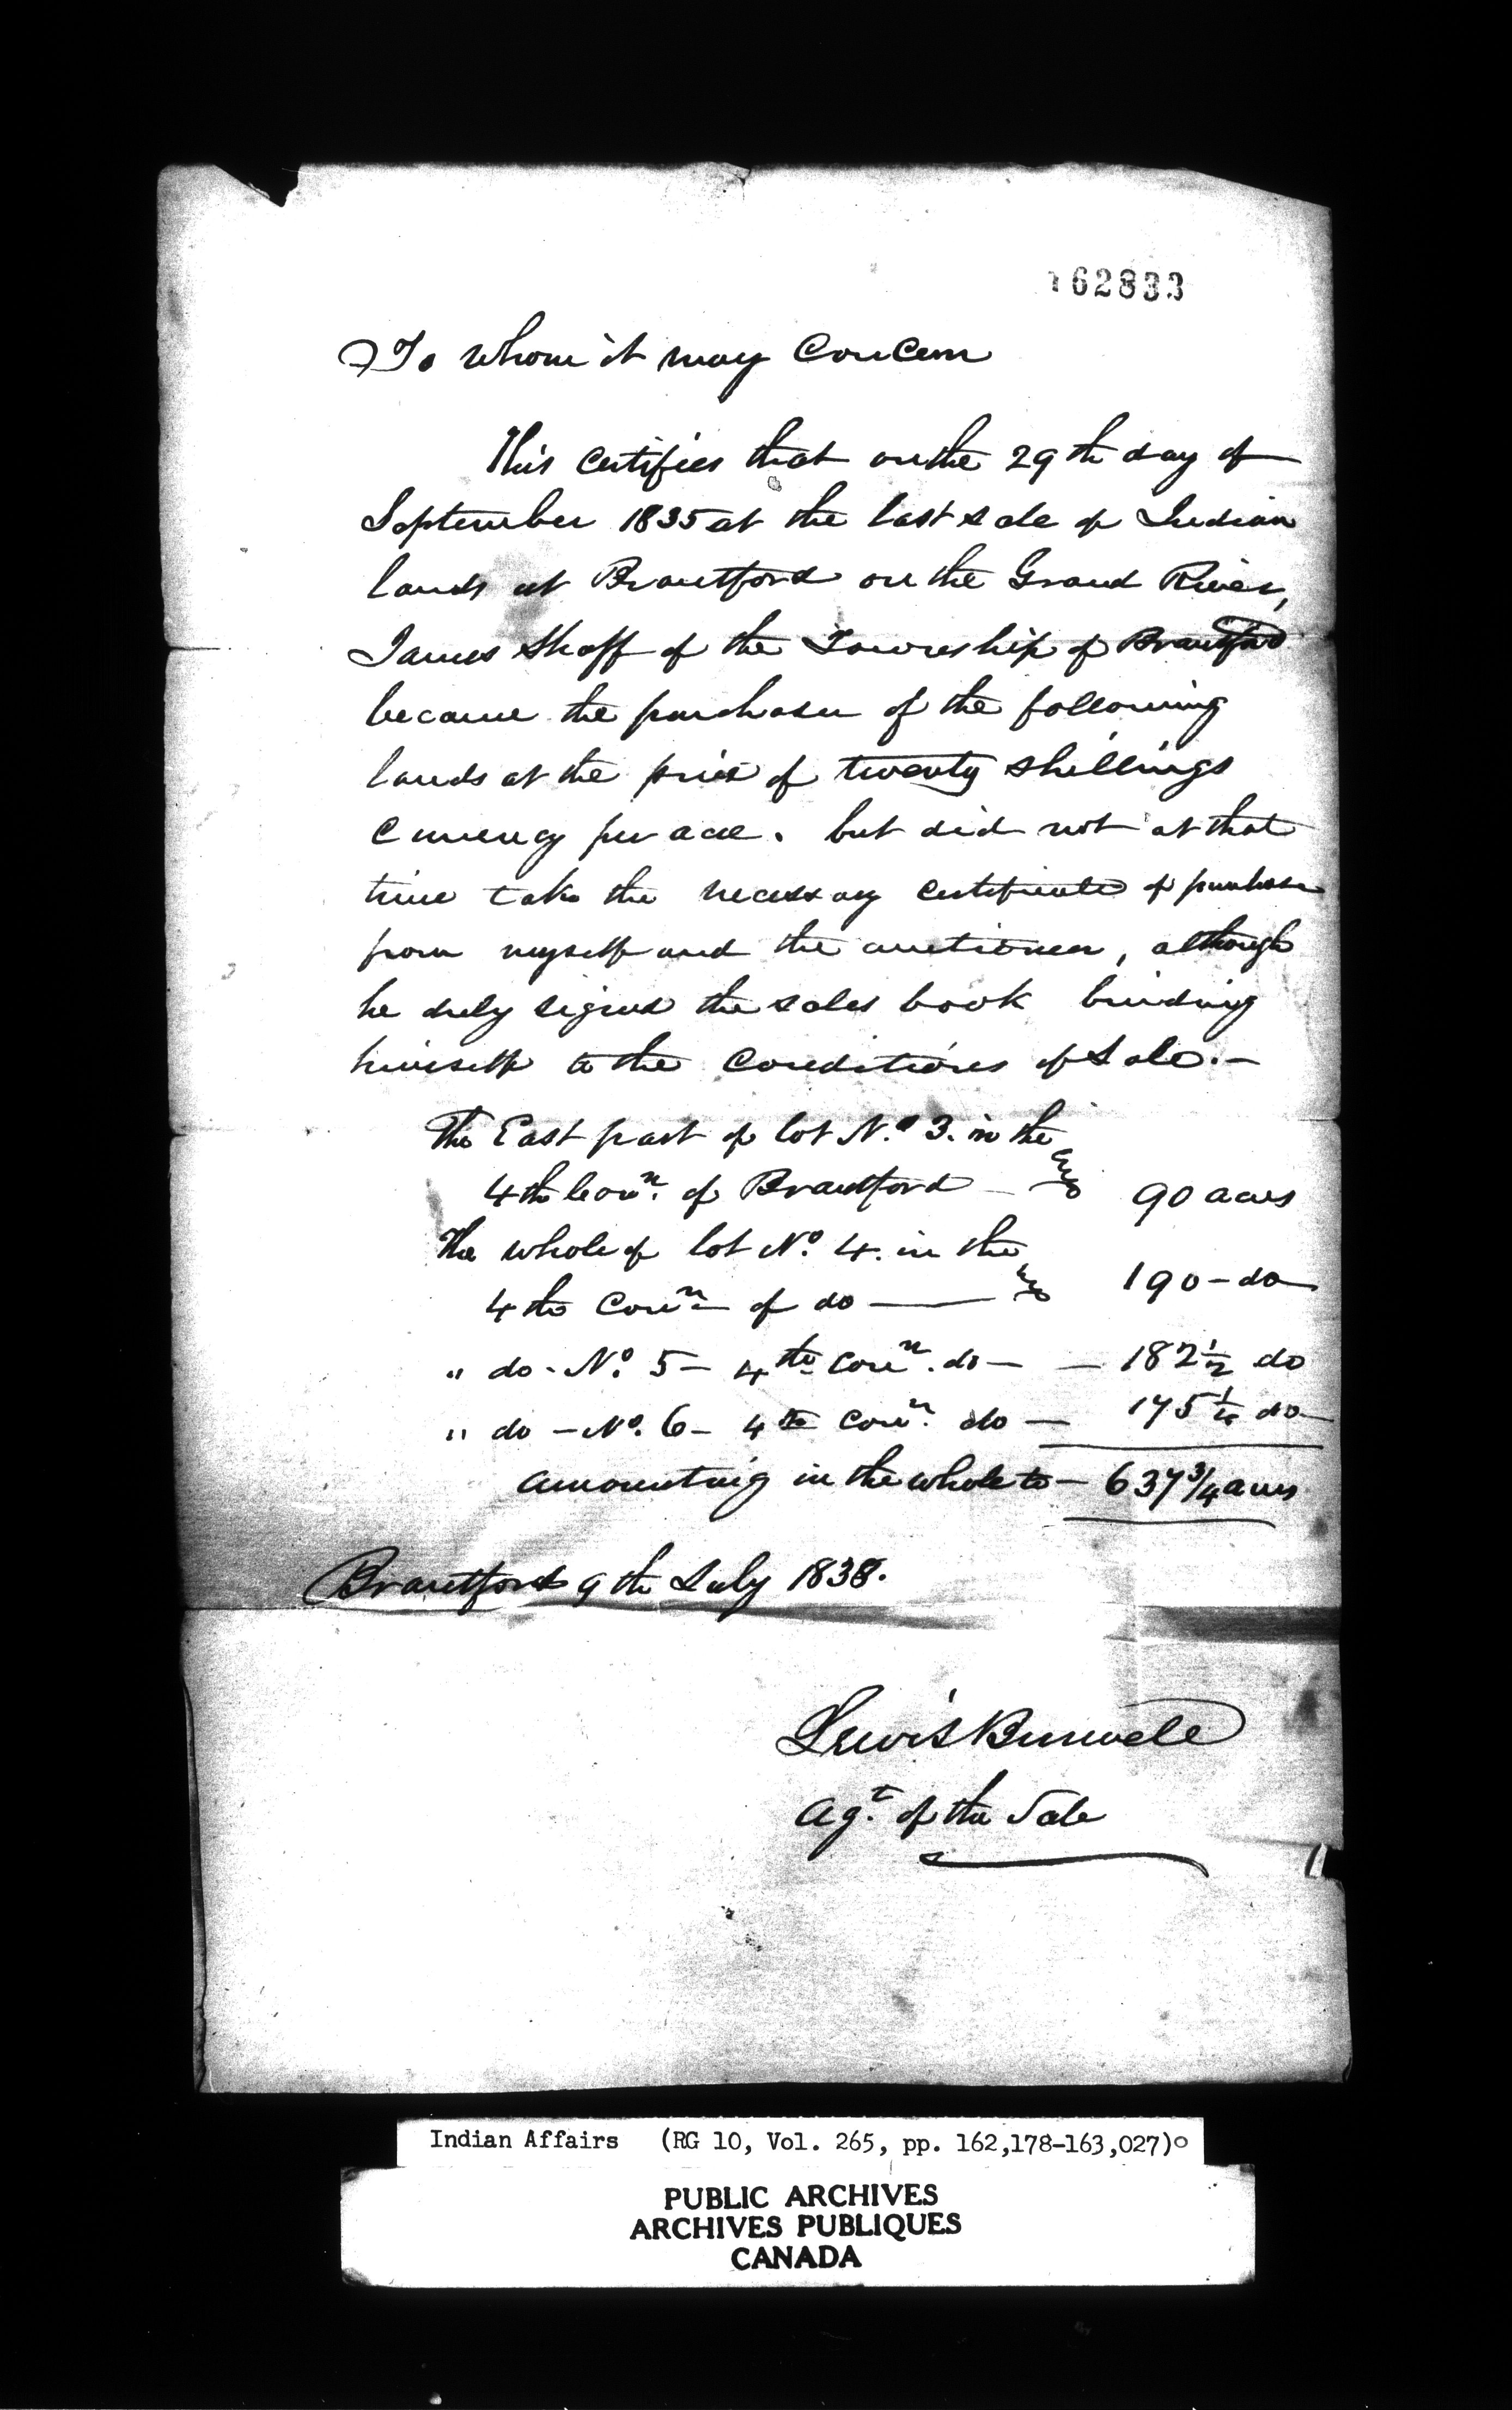 162833
To whom it may Concern
This certifies that on the 29th day of
September 1835 at the last sale of Indian
lands at Brantford on the Grand River,
James Shaff of the Township of Brantford
became the purchaser of the following
lands at the price of twenty shillings
Currency per acre. but did not at that
time take the necessary certificate of purchase
from myself and the auctioneer, although
he duly signed the sales book binding
himself to the Conditions of Sale.-
The East part of lot N.o 3. in the
4th Con.n of Brantford - 90 acres
The whole of lot No. 4. in the
4th Con.n of do — 190 - do
" do - No. 5 - 4th Con.n do - - 182 1/2 do
" do - No. 6 - 4th Con.n do - 175 1/4 do
amounting in the whole to - 637 3/4 acres
Brantford 9th July 1838.
Lewis Burwell
Ag.t of the Sale
Indian Affairs (RG 10, Vol. 265, pp. 162,178-163,027)o
PUBLIC ARCHIVES
ARCHIVES PUBLIQUES
CANADA